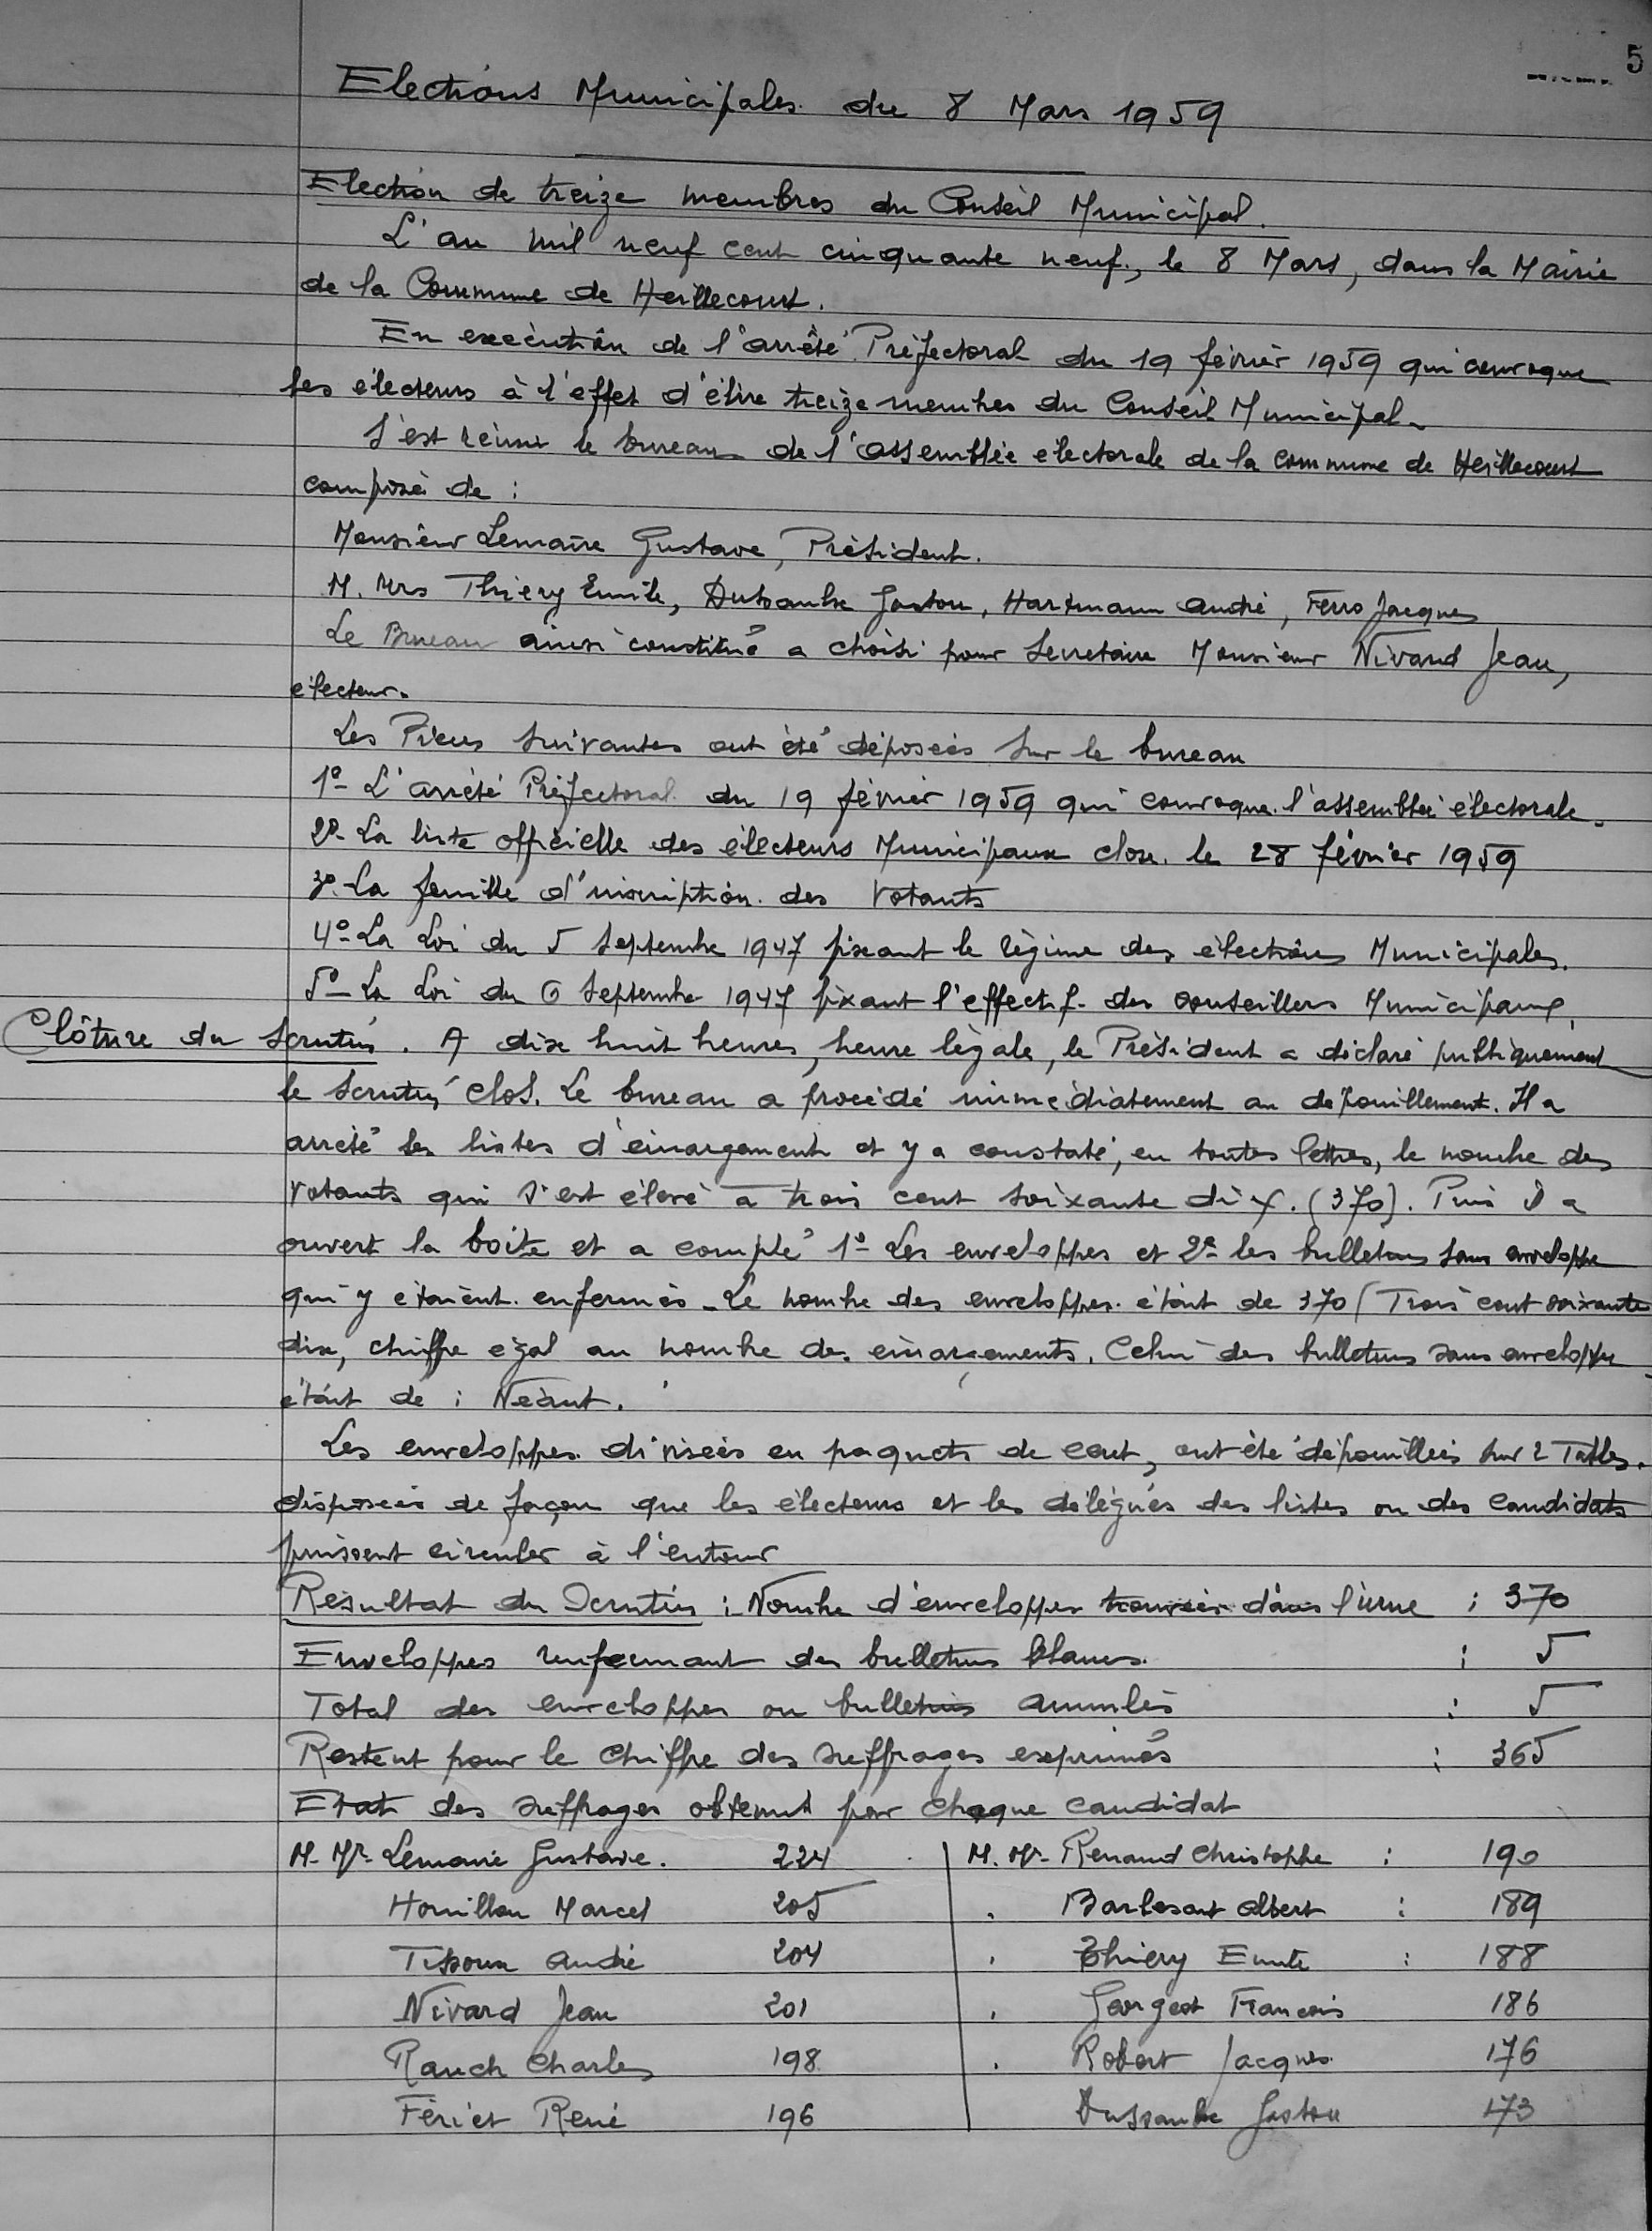 5
Elections Municipales du 8 Mars 1959
Election de treize membres du Conseil Municipal.
L'an mil neuf cent cinquante neuf, le 8 Mars, dans la Mairie
de la Commune de Heillecourt.
En exécution de l'arrêté Préfectoral du 19 février 1959 qui convoque
les électeurs à l'effet d'élire treize membres du Conseil Municipal.
S'est réuni le bureau de l'assemblée électorale de la commune de Heillecourt
composé de :
Monsieur Lemaire Gustave, Président.
M. Mrs Thiéry Emile, Dussaulx Gaston, Hartmann André, Ferro Jacques
Le Bureau ainsi constitué a choisi pour Secrétaire Monsieur Nivard Jean,
électeur.
Les Pièces suivantes ont été déposées sur le bureau
1º- L'arrêté Préfectoral du 19 février 1959 qui convoque l'assemblée électorale.
2º- La liste officielle des électeurs Municipaux close le 28 février 1959
3º- La feuille d'inscription des Votants
4º- La Loi du 5 Septembre 1947 fixant le régime des élections Municipales.
5º- La Loi du 6 Septembre 1947 fixant l'effectif des conseillers Municipaux.
Clôture du Scrutin. A dix huit heures, heure légale, le Président a déclaré publiquement
le scrutin clos. Le bureau a procédé immédiatement au dépouillement. Il a
arrêté les listes d'émargement et y a constaté, en toutes lettres, le nombre des
votants qui s'est élevé à trois cent soixante dix. (370). Puis il a
ouvert la boite et a compté 1º- Les enveloppes et 2º- les bulletins sans enveloppe
qui y étaient enfermés - Le nombre des enveloppes étant de 370 (Trois cent soixante
dix, chiffre égal au nombre des émargements. Celui des bulletins sans enveloppe
étant de : Néant.
Les enveloppes divisées en paquets de cent, ont été dépouillées sur 2 Tables.
disposées de façon que les électeurs et les délégués des listes ou des candidats
puissent circuler à l'entour
Résultat du Scrutin : Nombre d'enveloppes trouvées dans l'urne : 370
Enveloppes renfermant des bulletins blancs. : 5
Total des enveloppes ou bulletins annulés : 5
Restent pour le chiffre des suffrages exprimés : 365
Etat des suffrages obtenus par chaque candidat
M. Mr. Lemaire Gustave. 224
Houillon Marcel 205
André 204
Nivard Jean 201
Rauch Charles 198
Fériet René 196
M. Mr. Renaud Christophe : 190
Barbesant Albert : 189
Thiéry Emile : 188
Gorgeot Francois 186
Robert Jacques 176
Dussaulx Gaston 173